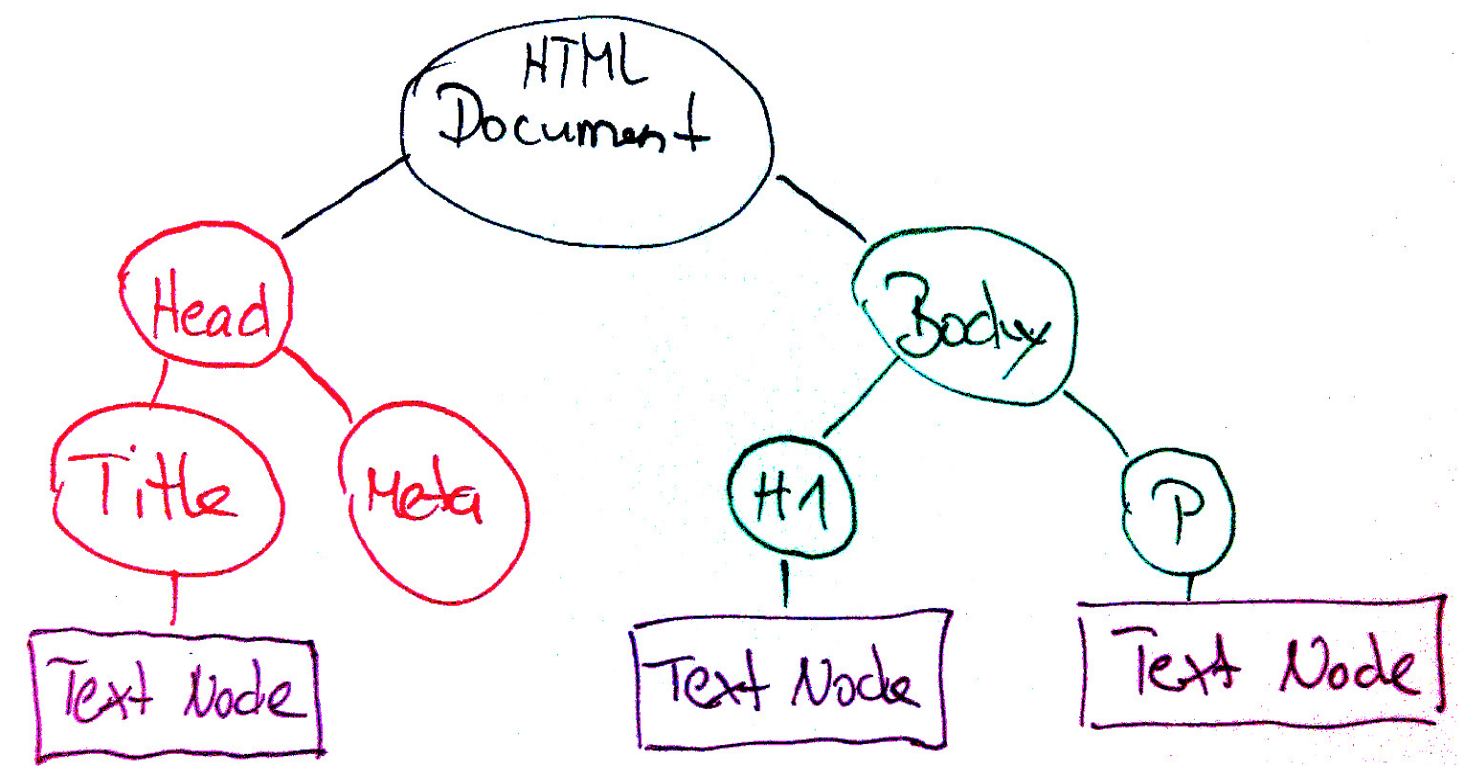 HTML
Document
Head
Body
Title
Meta
H1
P
Text Node
Text Node
Text Node